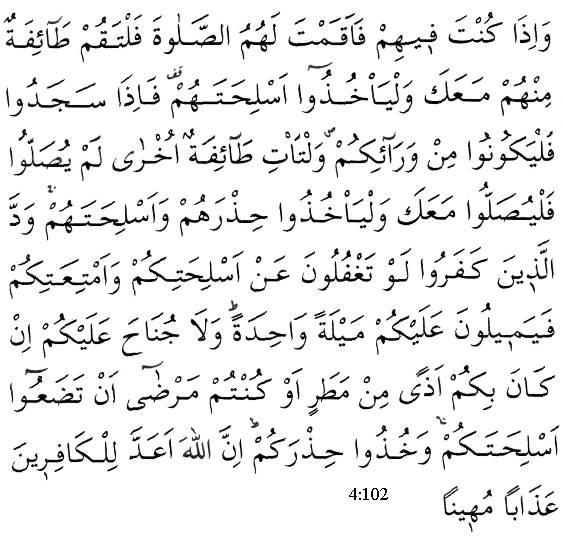 وَاِذَا كُنْتَ ف۪يهِمْ فَاَقَمْتَ لَهُمُ الصَّلٰوةَ فَلْتَقُمْ طَٓائِفَةٌ
مِنْهُمْ مَعَكَ وَلْيَأْخُذُٓوا اَسْلِحَتَهُمْ۠ فَاِذَا سَجَدُوا
فَلْيَكُونُوا مِنْ وَرَٓائِكُمْۖ وَلْتَأْتِ طَٓائِفَةٌ اُخْرٰى لَمْ يُصَلُّوا
فَلْيُصَلُّوا مَعَكَ وَلْيَأْخُذُوا حِذْرَهُمْ وَاَسْلِحَتَهُمْۚ وَدَّ
الَّذ۪ينَ كَفَرُوا لَوْ تَغْفُلُونَ عَنْ اَسْلِحَتِكُمْ وَاَمْتِعَتِكُمْ
فَيَم۪يلُونَ عَلَيْكُمْ مَيْلَةً وَاحِدَةًۜ وَلَا جُنَاحَ عَلَيْكُمْ اِنْ
كَانَ بِكُمْ اَذًى مِنْ مَطَرٍ اَوْ كُنْتُمْ مَرْضٰٓى اَنْ تَضَعُٓوا
اَسْلِحَتَكُمْۚ وَخُذُوا حِذْرَكُمْۜ اِنَّ اللّٰهَ اَعَدَّ لِلْكَافِر۪ينَ
عَذَاباً مُه۪يناً
4:102